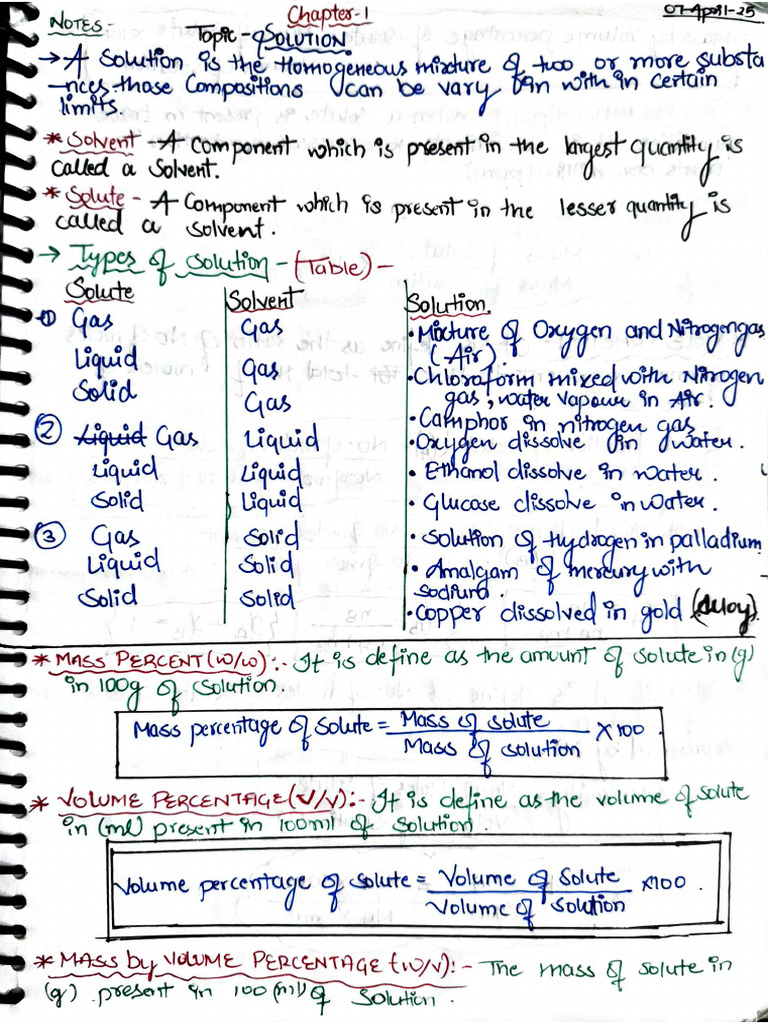 Chapter-1
07-April-25
NOTES- Topic - SOLUTION
→ A Solution is the Homogeneous mixture of two or more substa
-nces those Compositions can be vary with in certain
limits.
* Solvent - A Component which is present in the largest quantity is
called a Solvent.
* Solute - A Component which is present in the lesser quantity is
called a solvent.
→ Types of Solution - (Table) -
Solute Solvent Solution.
① Gas Gas • Mixture of Oxygen and Nitrogen gas
(Air).
Liquid Gas • Chloroform mixed with Nitrogen
gas, water vapour in Air.
Solid Gas • Camphor in nitrogen gas.
② Liquid Gas Liquid • Oxygen dissolve in water.
Liquid Liquid • Ethanol dissolve in water.
Solid Liquid • Glucose dissolve in water.
③ Gas Solid • Solution of Hydrogen in palladium
Liquid Solid • Amalgam of mercury with
sodium.
Solid Solid • Copper dissolved in gold (Alloy).
* MASS PERCENT (w/w):- It is define as the amount of solute in (g)
in 100g of solution.
Mass percentage of Solute = Mass of solute / Mass of solution × 100.
* VOLUME PERCENTAGE (V/V):- It is define as the volume of solute
in (ml) present in 100ml of solution.
Volume percentage of solute = Volume of Solute / Volume of Solution ×100.
* MASS by VOLUME PERCENTAGE (w/v):- The mass of solute in
(g) present in 100 (ml) of Solution.